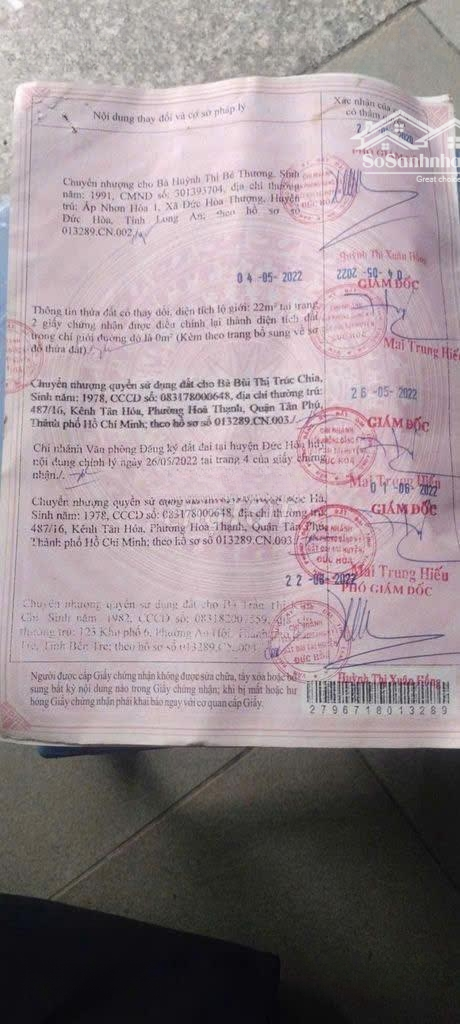 Nội dung thay đổi và cơ sở pháp lý
Xác nhận của
có thẩm
SoSanhnha
Great choice
PHÓ GIÁM
Chuyển nhượng cho Bà Huỳnh Thị Bé Thương, Sinh
năm: 1991, CMND số: 301393704, địa chỉ thường
trú: Ấp Nhơn Hòa 1, Xã Đức Hòa Thượng, Huyện
Đức Hòa, Tỉnh Long An; theo hồ sơ số
013289.CN.002./
Huỳnh Thị Xuân Hồng
04-05-2022
04-05-2022
GIÁM ĐỐC
Thông tin thửa đất có thay đổi, diện tích lộ giới: 22m² tại trang
2 giấy chứng nhận được điều chỉnh lại thành diện tích đất
trong chỉ giới đường đỏ là 0m² (Kèm theo trang bổ sung về sơ
đồ thửa đất)
ĐỨC HÒA
Mai Trung Hiếu
26-05-2022
Chuyển nhượng quyền sử dụng đất cho Bà Bùi Thị Trúc Chia,
Sinh năm: 1978, CCCD số: 083178000648, địa chỉ thường trú:
487/16, Kênh Tân Hóa, Phường Hoà Thạnh, Quận Tân Phú,
Thành phố Hồ Chí Minh; theo hồ sơ số 013289.CN.003./.
GIÁM ĐỐC
CHI NHÁNH
ĐỨC HOÀ
Chi nhánh Văn phòng Đăng ký đất đai tại huyện Đức Hòa hủy
nội dung chỉnh lý ngày 26/05/2022 tại trang 4 của giấy chứng
nhận./.
Mai Trung Hiếu
01-06-2022
GIÁM ĐỐC
Chuyển nhượng quyền sử dụng đất Hà,
Sinh năm: 1978, CCCD số: 083178000648, địa chỉ thường trú:
487/16, Kênh Tân Hóa, Phường Hoà Thạnh, Quận Tân Phú,
Thành phố Hồ Chí Minh; theo hồ sơ số 013289.CN.003./
CHI NHÁNH
ĐỨC HOÀ
Mai Trung Hiếu
22-08-2022
PHÓ GIÁM ĐỐC
Chuyển nhượng quyền sử dụng đất cho Bà Trần Thị
Sinh năm: 1982, CCCD số: 083182007559, địa chỉ
thường trú: 123 Khu phố 6, Phường An Hội, Thành phố Bến
Tre, Tỉnh Bến Tre; theo hồ sơ số 013289.CN.004
CHI NHÁNH
ĐỨC HÒA
Huỳnh Thị Xuân Hồng
Người được cấp Giấy chứng nhận không được sửa chữa, tẩy xóa hoặc bổ
sung bất kỳ nội dung nào trong Giấy chứng nhận; khi bị mất hoặc hư
hỏng Giấy chứng nhận phải khai báo ngay với cơ quan cấp Giấy.
2796718013289